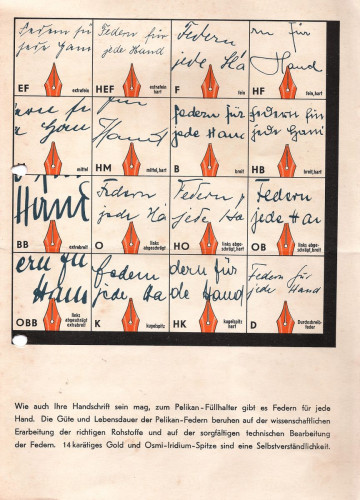 Federn fü
jede Hand
EF extrafein
Federn für
jede Hand
HEF extrafein, hart
Federn
jede Ha
F fein
rn für
Hand
HF fein, hart
ern fü
Han
mittel
für
Hand
HM mittel, hart
Federn für
jede Hand
B breit
Federn für
jede Han
HB breit, hart
Hand
BB extrabreit
Federn
jede Ha
O links abgeschrägt
Federn f
jede Ha
HO links abgeschrägt, hart
Federn
jede Han
OB links abgeschrägt, breit
ern fü
Han
OBB links abgeschrägt extrabreit
Federn
jede Ha
K kugelspitz
dern für
de Hand
HK kugelspitz, hart
Federn für
jede Hand
D Durchschreibfeder
Wie auch Ihre Handschrift sein mag, zum Pelikan-Füllhalter gibt es Federn für jede
Hand. Die Güte und Lebensdauer der Pelikan-Federn beruhen auf der wissenschaftlichen
Erarbeitung der richtigen Rohstoffe und auf der sorgfältigen technischen Bearbeitung
der Federn. 14 karätiges Gold und Osmi-Iridium-Spitze sind eine Selbstverständlichkeit.